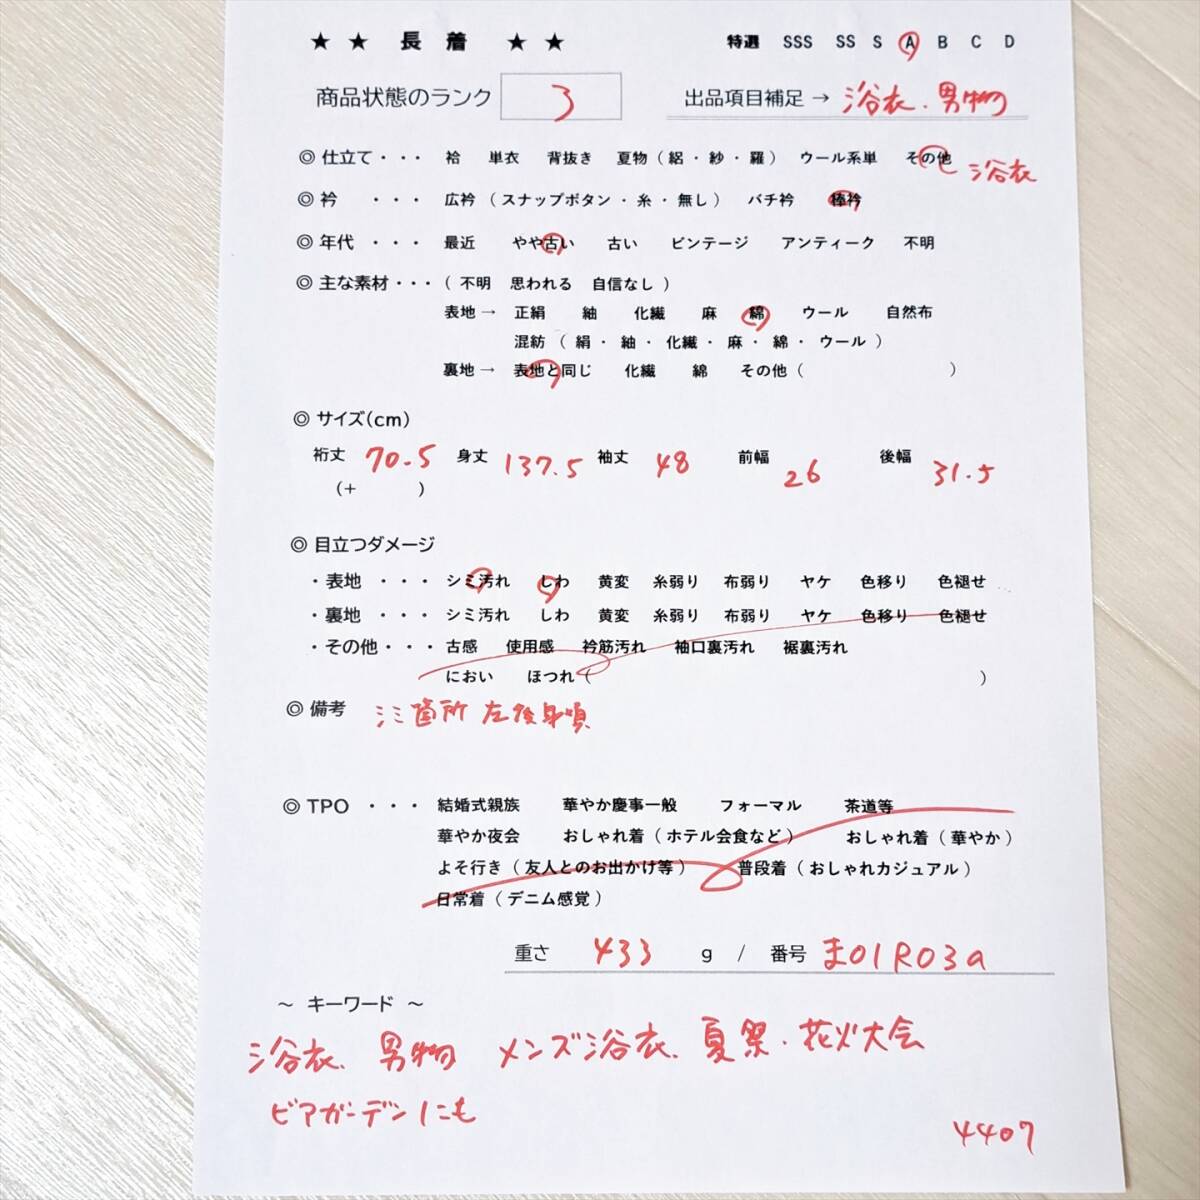 ★ ★ 長 着 ★ ★ 特選 SSS SS S A B C D
商品状態のランク 3 出品項目補足 → 浴衣、男物
◎ 仕立て・・・ 袷 単衣 背抜き 夏物(絽・紗・羅) ウール系単 その他 浴衣
◎ 衿 ・・・ 広衿(スナップボタン・糸・無し) バチ衿 棒衿
◎ 年代 ・・・ 最近 やや古い 古い ビンテージ アンティーク 不明
◎ 主な素材・・・( 不明 思われる 自信なし )
表地→ 正絹 紬 化繊 麻 綿 ウール 自然布
混紡 ( 絹・紬・化繊・麻・綿・ウール )
裏地→ 表地と同じ 化繊 綿 その他( )
◎ サイズ(cm)
裄丈 70.5 身丈 137.5 袖丈 48 前幅 26 後幅 31.5
(+ )
◎ 目立つダメージ
・表地 ・・・ シミ汚れ しわ 黄変 糸弱り 布弱り ヤケ 色移り 色褪せ
・裏地 ・・・ シミ汚れ しわ 黄変 糸弱り 布弱り ヤケ 色移り 色褪せ
・その他・・・ 古感 使用感 衿筋汚れ 袖口裏汚れ 裾裏汚れ
におい ほつれ( )
◎ 備考 シミ箇所 左後身頃
◎ TPO ・・・ 結婚式親族 華やか慶事一般 フォーマル 茶道等
華やか夜会 おしゃれ着(ホテル会食など) おしゃれ着(華やか)
よそ行き(友人とのお出かけ等) 普段着(おしゃれカジュアル)
日常着(デニム感覚)
重さ 433 g / 番号 ま01R03a
～ キーワード ～
浴衣、男物 メンズ浴衣、夏祭・花火大会
ビアガーデンにも
4407